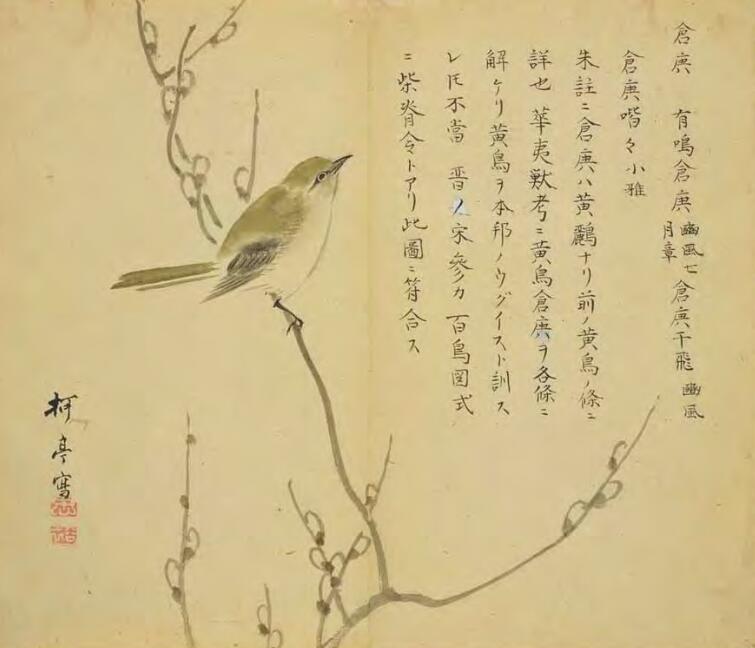 倉庚 有鳴倉庚豳風七月章倉庚于飛豳風
倉庚喈々小雅
朱註ニ倉庚ハ黄鸝ナリ前ノ黄鳥ノ條ニ
詳也 華夷獣考ニ黄鳥倉庚ヲ各條ニ
解ケリ黄鳥ヲ本邦ノウグイスト訓ス
レ𪜈不當 晋ノ宋參カ百鳥図式
ニ柴脊令トアリ此圖ニ符合ス
柯亭寫